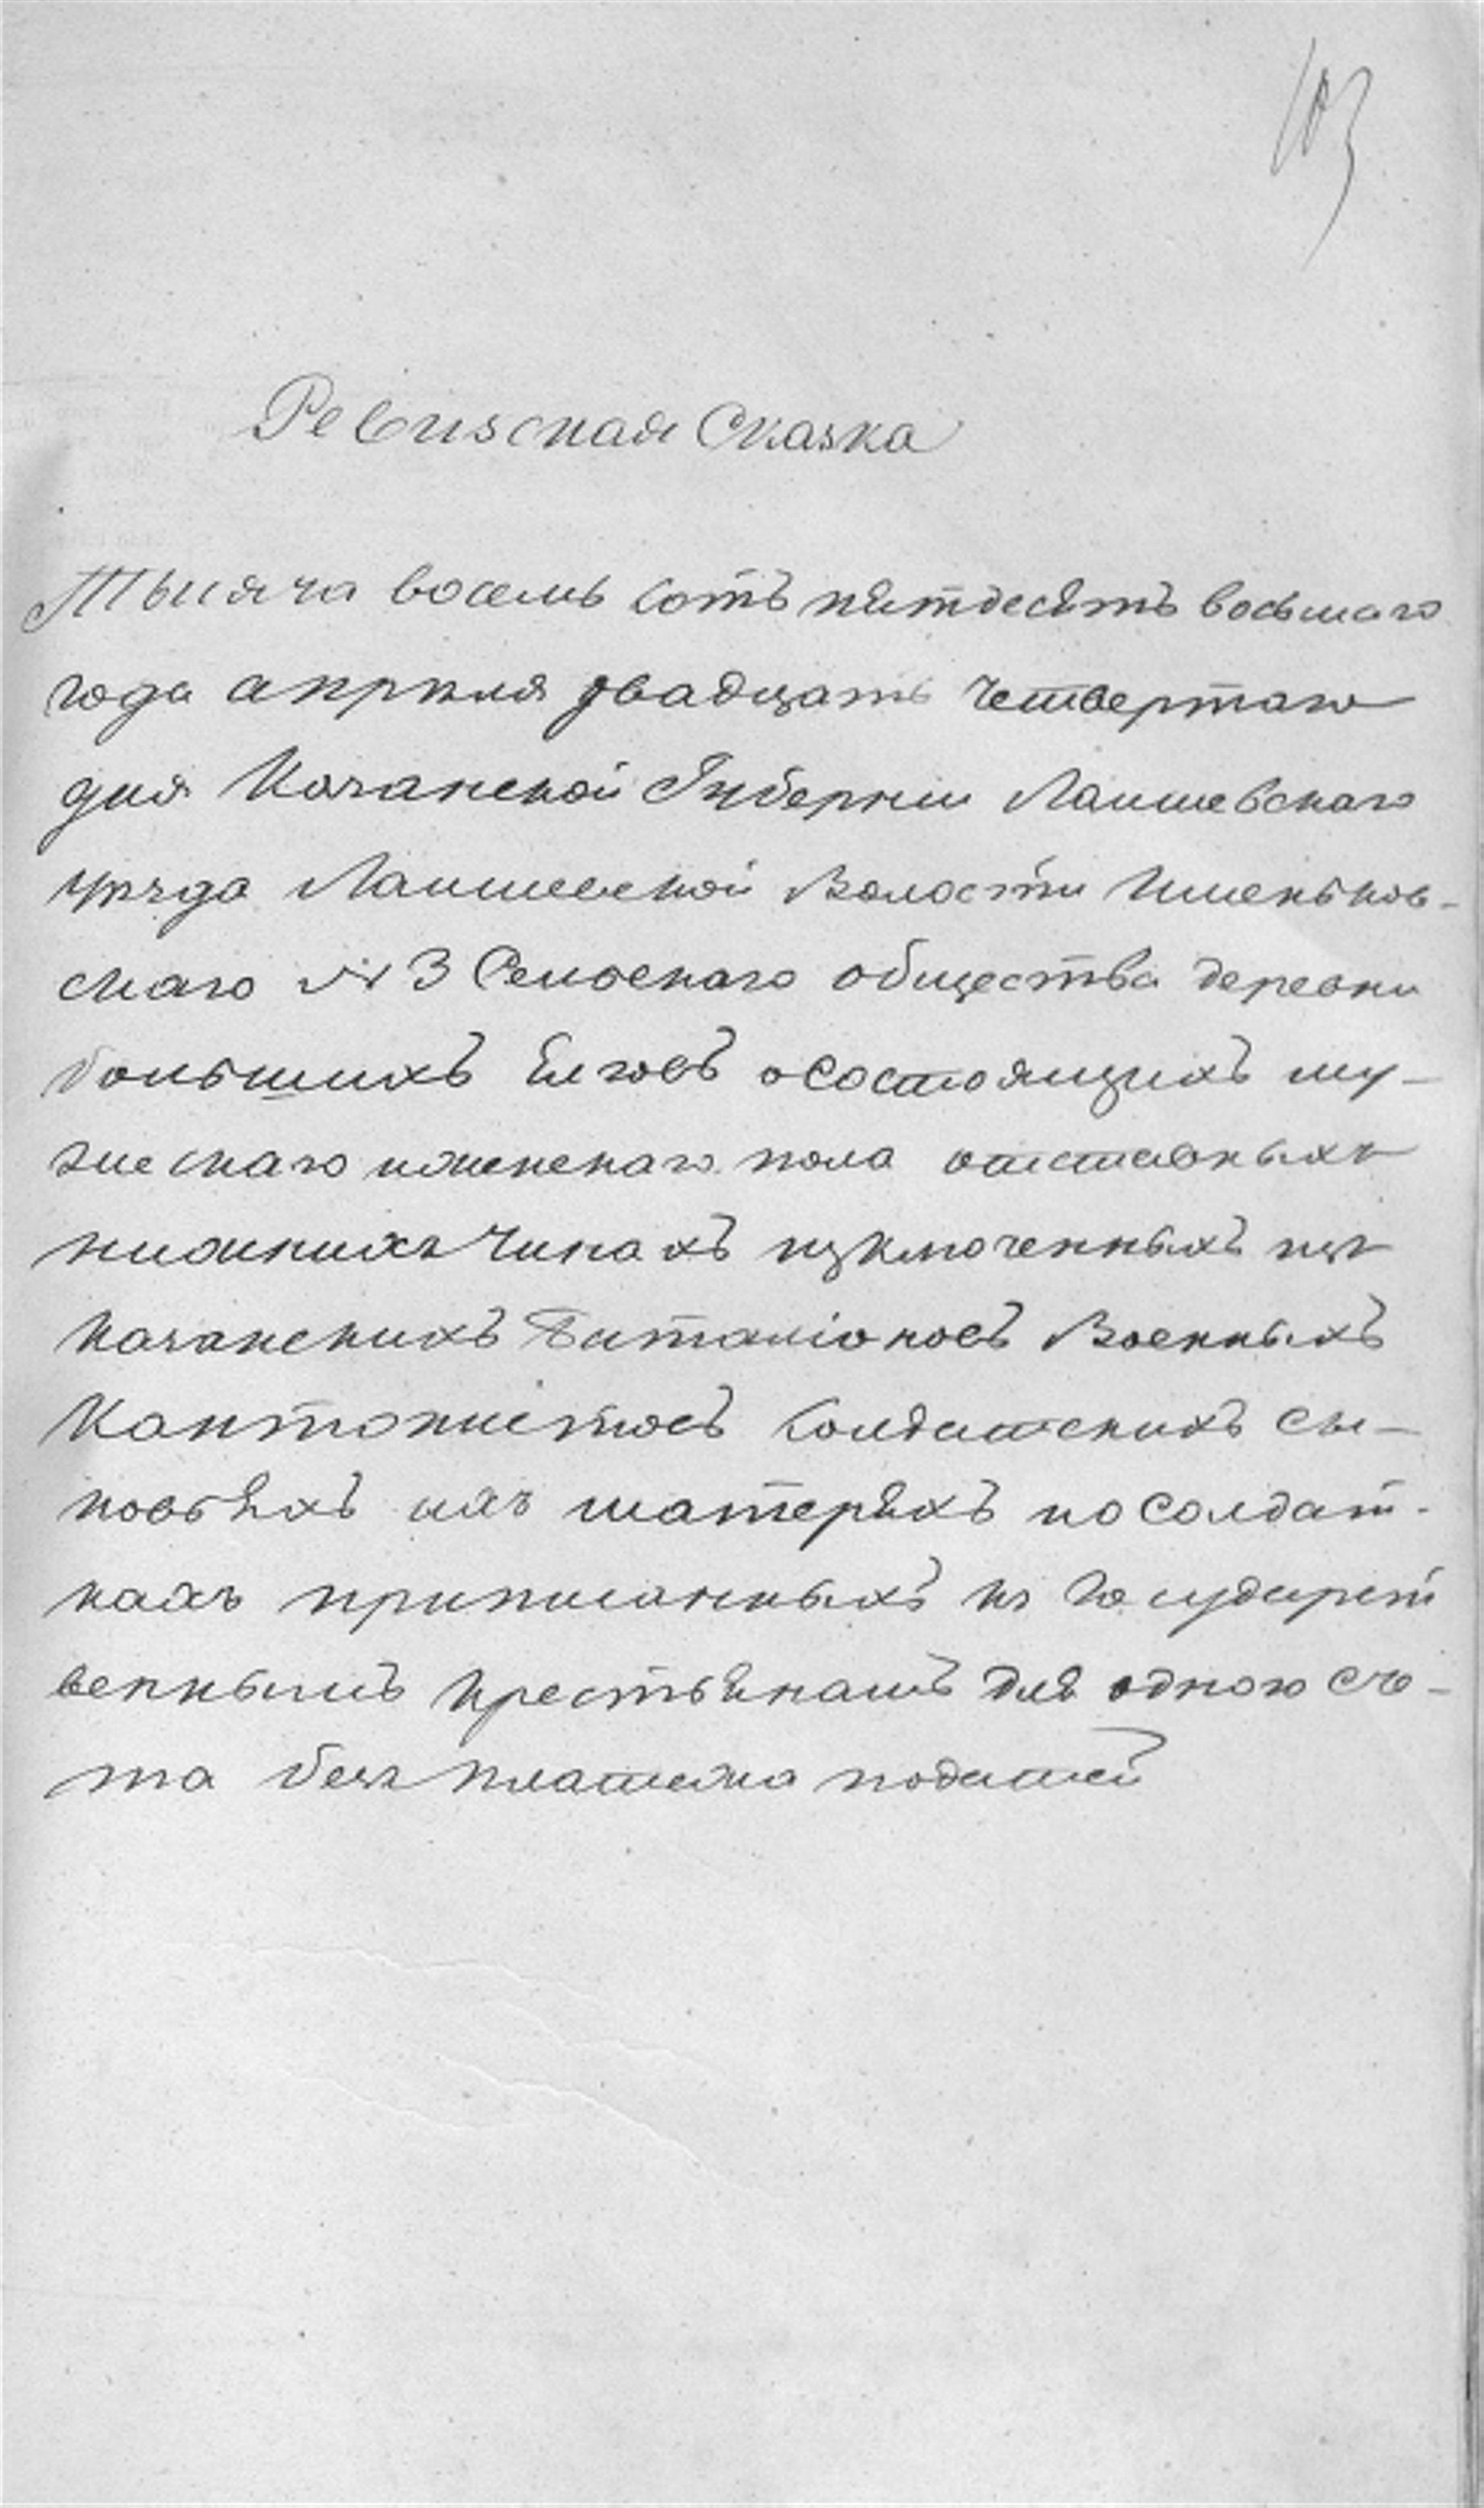 103
Ревизская Сказка
Тысяча восемь сотъ пятдесятъ восьмаго
года апреля двадцать четвертаго
дня Казанской Губернии Лаишевскаго
уезда Лаишевской Волости Именьков-
скаго № 3 Сельскаго общества деревни
большихъ Елговъ о состоящихъ му-
жескаго и женскаго пола отставныхъ
нижнихъ Чинахъ изключенныхъ изъ
казанскихъ Баталіоновъ Военныхъ
Кантонистовъ солдатскихъ сы-
новьяхъ ихъ матеряхъ и о солдат-
кахъ приписанныхъ къ государст
веннымъ крестьянамъ для одного сче-
та безъ платежа податей